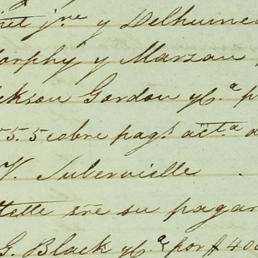 jne y Delhume
orphy y Marzan
ckson Gordon y Ca p
55.5 cobre pags acta a
V. Juberville
ttelle sre su pagar
G. Black y Ca por $ 400